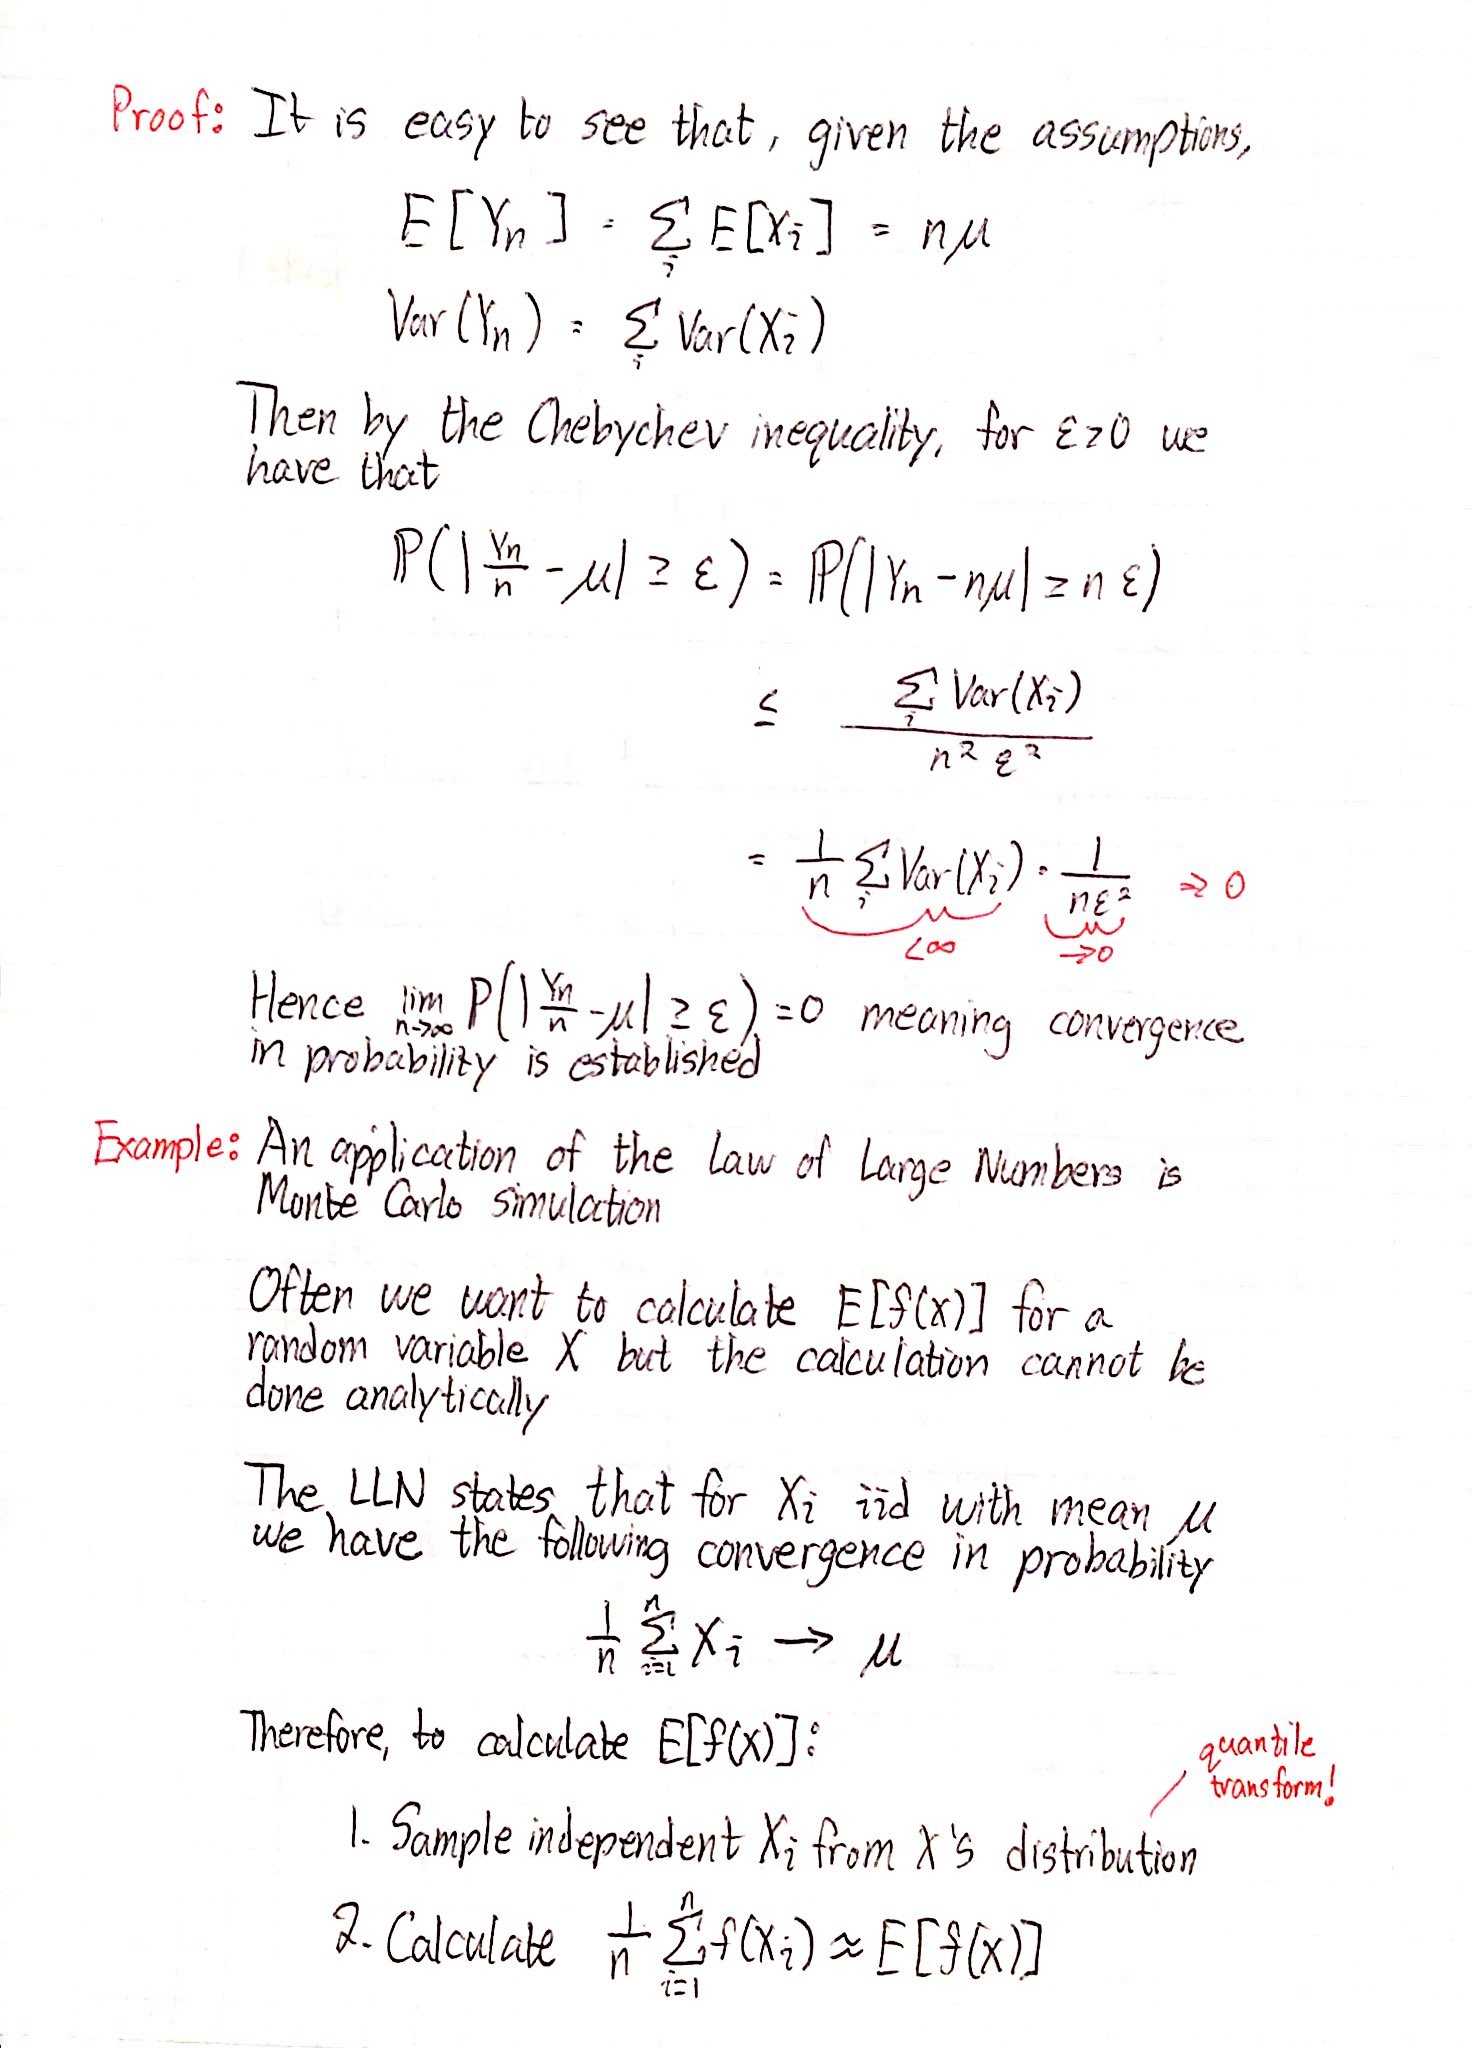 Proof: It is easy to see that, given the assumptions,
E[Yn] = Σ_i E[Xi] = nμ
Var(Yn) = Σ_i Var(Xi)
Then by the Chebychev inequality, for ε>0 we
have that
ℙ(|Yn/n - μ| ≥ ε) = ℙ(|Yn - nμ| ≥ n ε)
≤ Σ_i Var(Xi) / n² ε²
= 1/n Σ_i Var(Xi) · 1/nε² → 0
<∞ →0
Hence lim n→∞ P(|Yn/n - μ| ≥ ε) = 0 meaning convergence
in probability is established
Example: An application of the Law of Large Numbers is
Monte Carlo simulation
Often we want to calculate E[f(x)] for a
random variable X but the calculation cannot be
done analytically
The LLN states that for Xi iid with mean μ
we have the following convergence in probability
1/n Σ_{i=1}^n Xi → μ
Therefore, to calculate E[f(x)]:
quantile
transform!
1. Sample independent Xi from X's distribution
2. Calculate 1/n Σ_{i=1}^n f(Xi) ≈ E[f(x)]